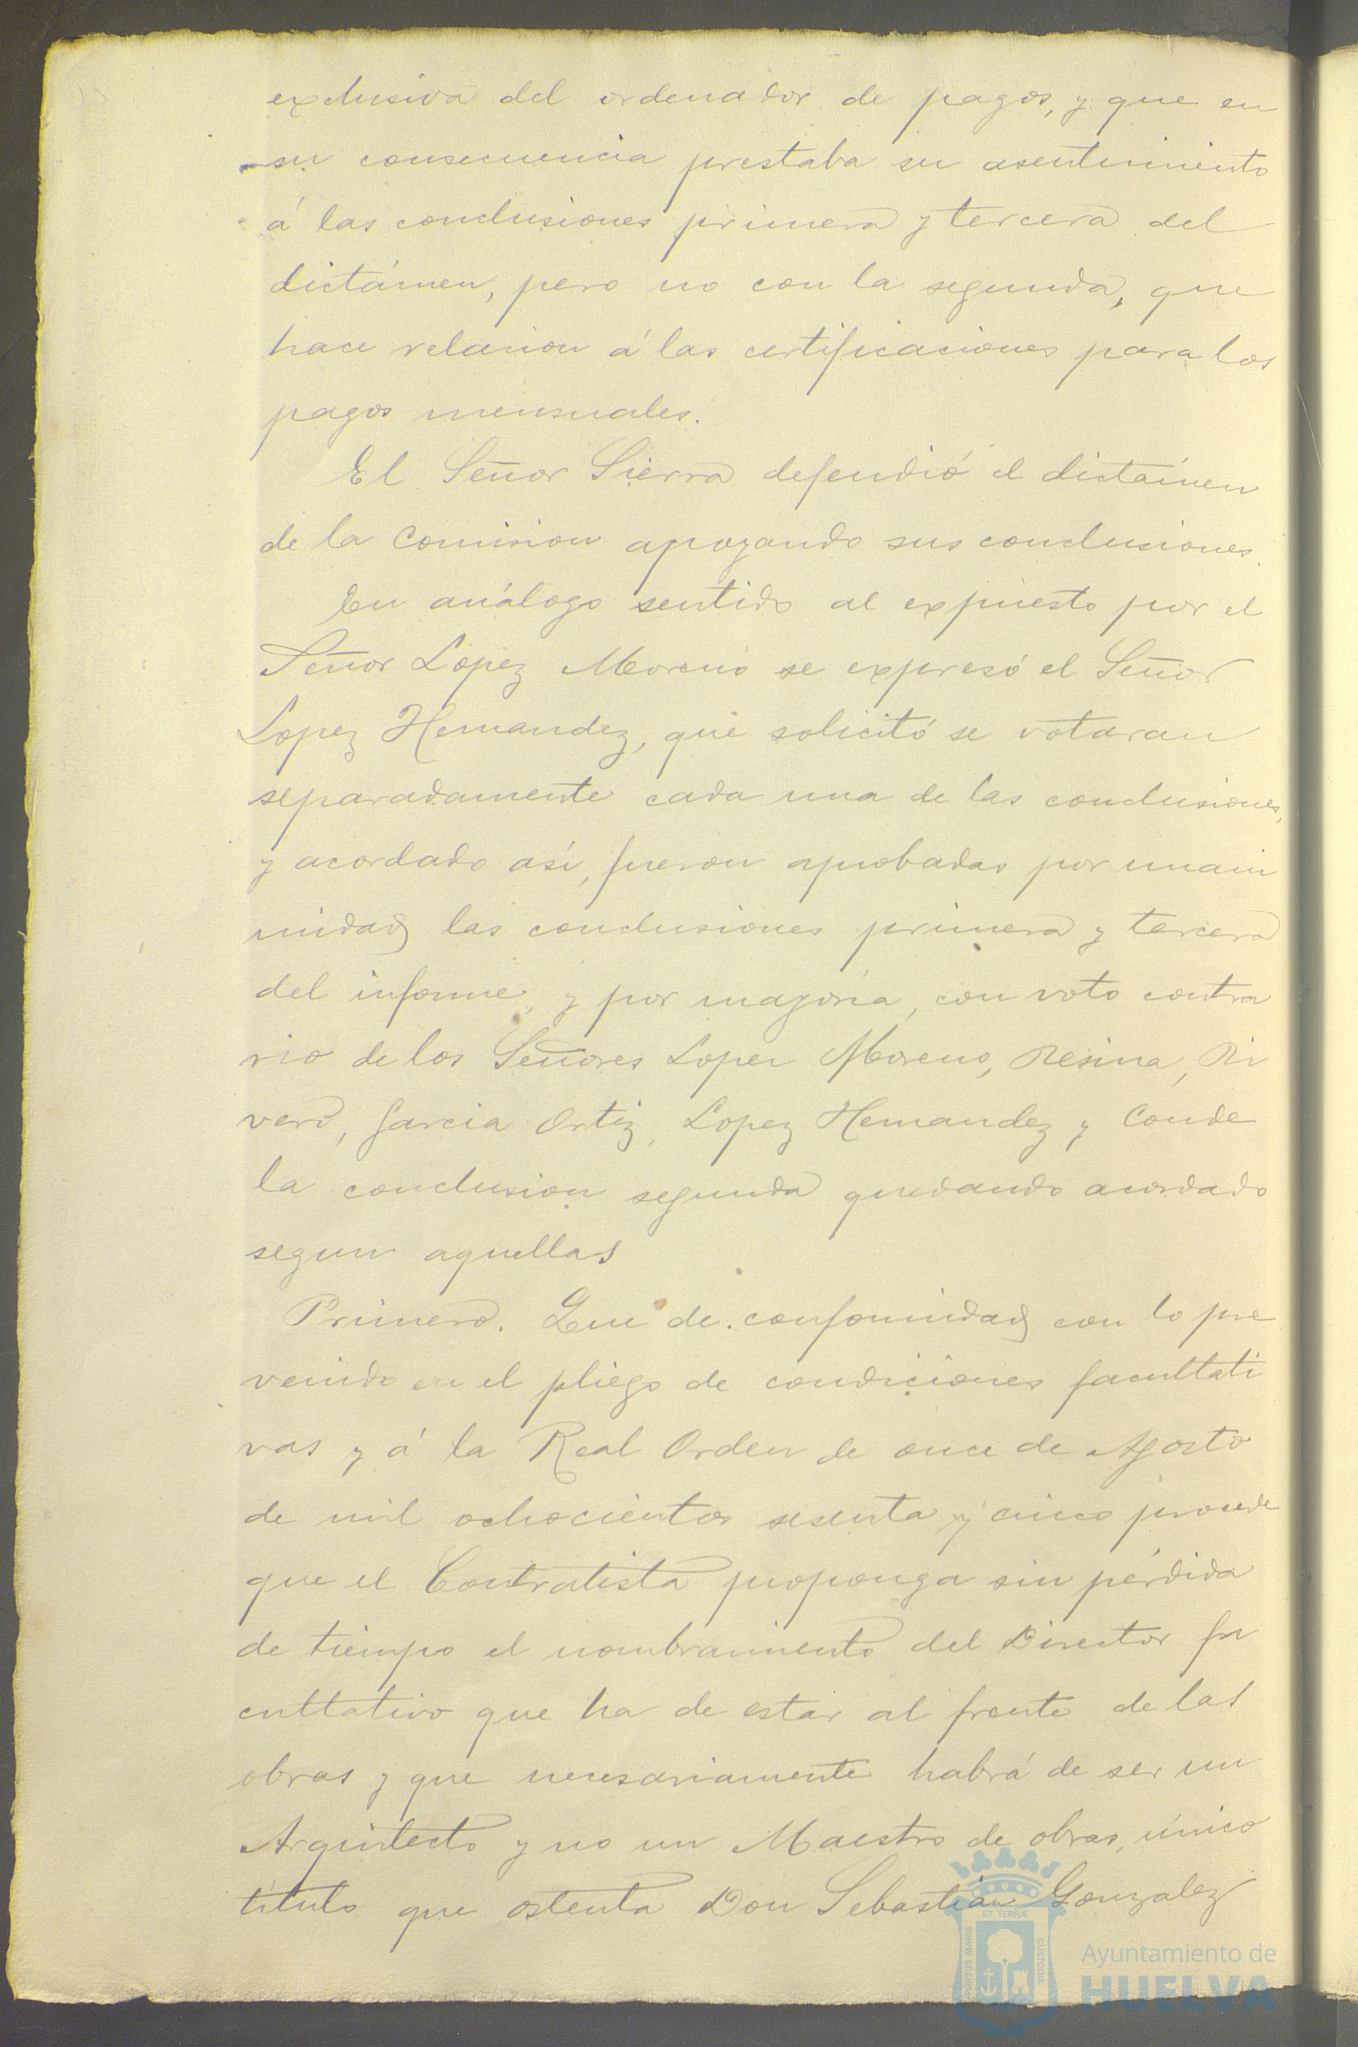 exclusiva del ordenador de pagos, y que en
su consecuencia prestaba su asentimiento
á las conclusiones primera y tercera del
dictámen, pero no con la segunda, que
hace relacion á las certificaciones para los
pagos mensuales.
El Señor Sierra defendió el dictámen
de la Comision apoyando sus conclusiones.
En análogo sentido al expuesto por el
Señor Lopez Moreno se expresó el Señor
Lopez Hernandez, que solicitó se votaran
separadamente cada una de las conclusiones,
y acordado así, fueron aprobadas por unani
midad las conclusiones primera y tercera
del informe, y por mayoría, con voto contra
rio de los Señores Lopez Moreno, Resina, Ri
vero, Garcia Ortiz, Lopez Hernandez y Conde
la conclusion segunda quedando acordado
segun aquellas
Primero. Que de conformidad con lo pre
venido en el pliego de condiciones facultati
vas y á la Real Orden de once de Agosto
de mil ochocientos sesenta y cinco procede
que el Contratista proponga sin pérdida
de tiempo el nombramiento del Director fa
cultativo que ha de estar al frente de las
obras y que necesariamente habrá de ser un
Arquitecto y no un Maestro de obras, único
título que ostenta Don Sebastián Gonzalez
PORTUS MARIS
ET TERRÆ
CUSTODIA
Ayuntamiento de
HUELVA